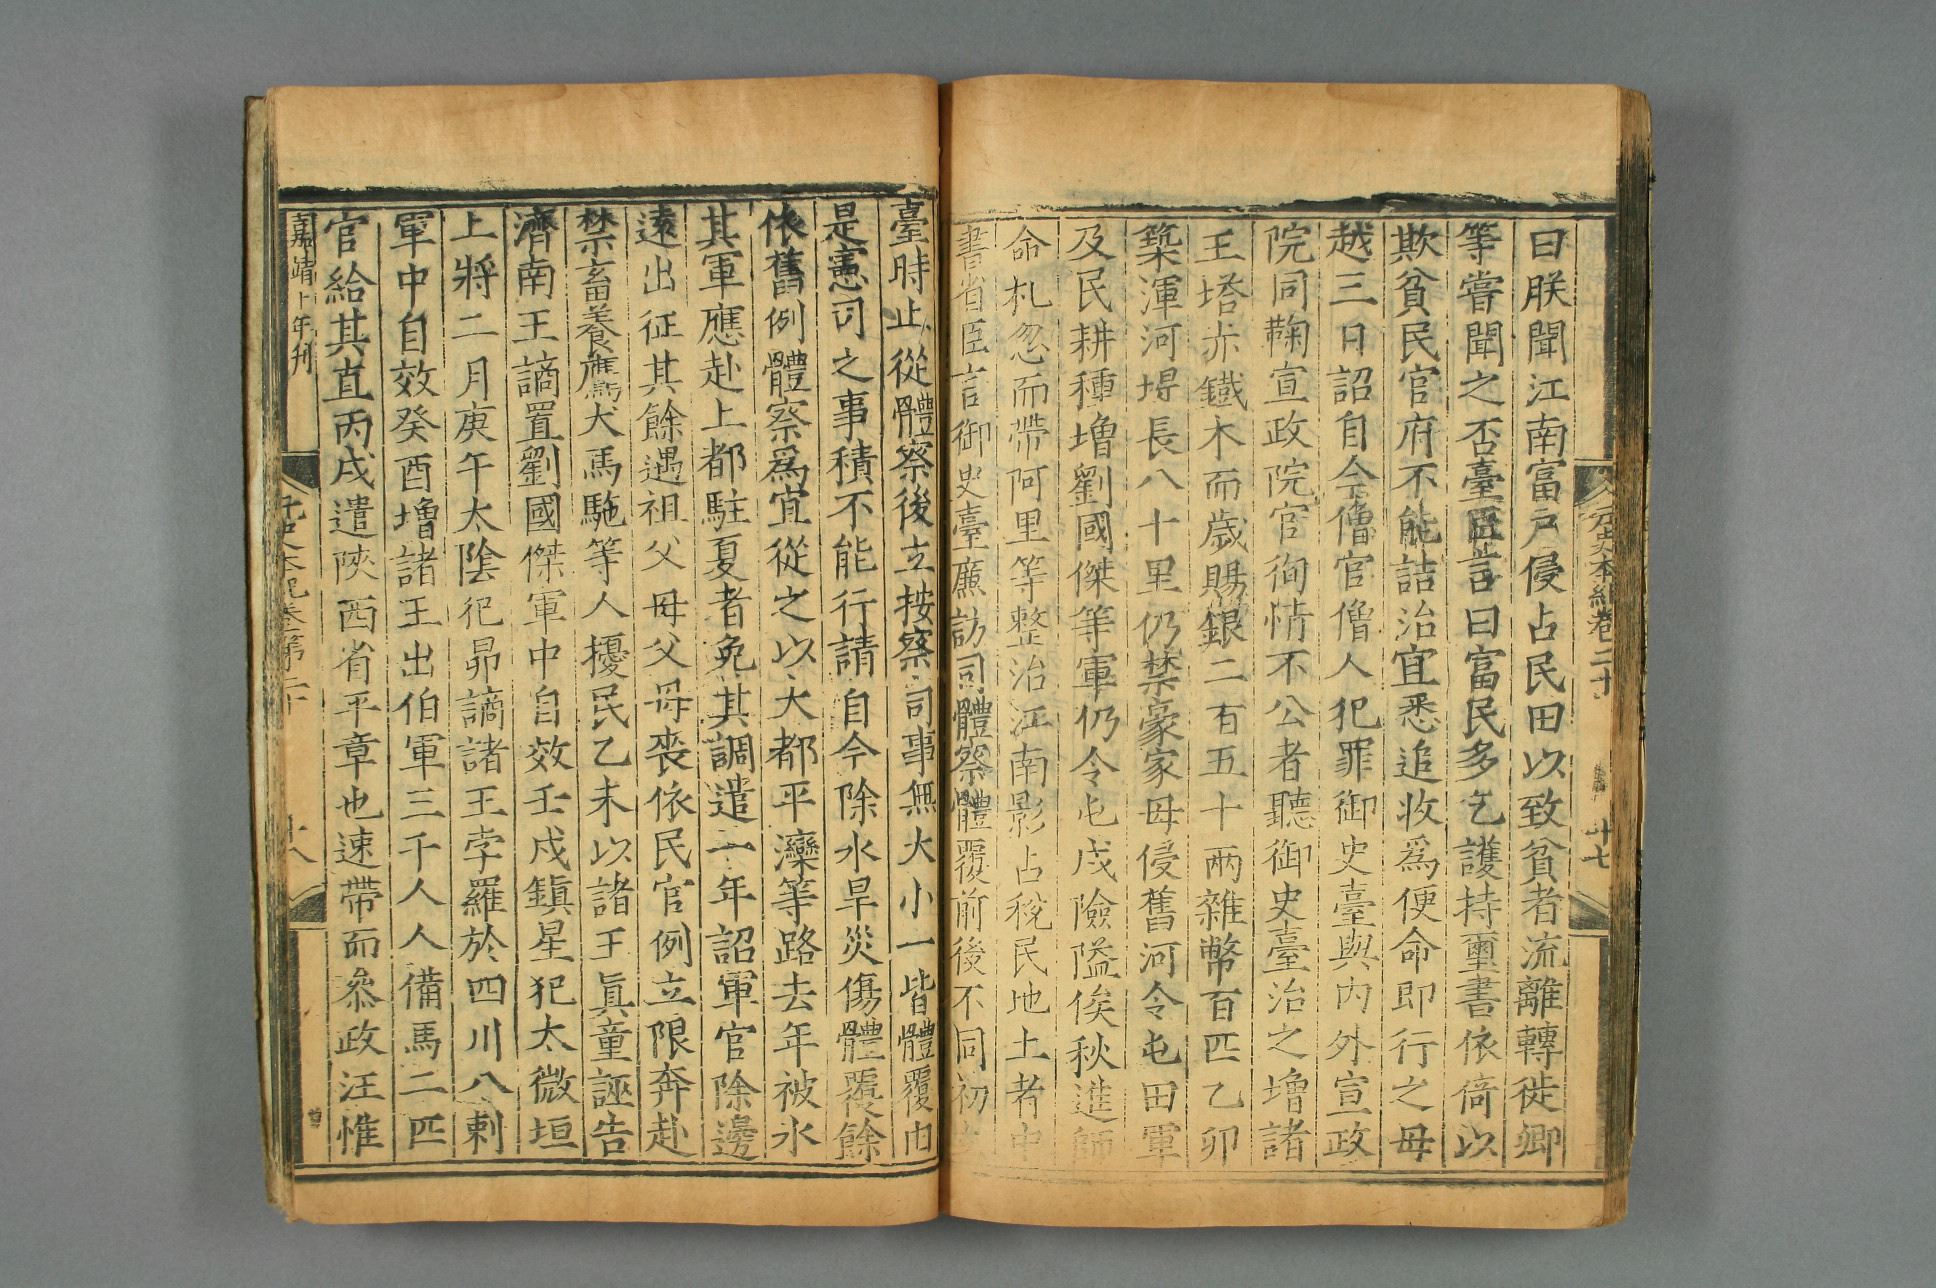 元史本紀卷二十
十七
曰朕聞江南富戸侵占民田以致貧者流離轉徙卿
等嘗聞之否臺臣言曰富民多乞護持璽書依倚以
欺貧民官府不能詰治宜悉追收爲便命即行之毋
越三日詔自今僧官僧人犯罪御史臺與內外宣政
院同鞫宣政院官徇情不公者聽御史臺治之增諸
王塔赤鐵木而歲賜銀二百五十兩雜幣百匹乙卯
築渾河堤長八十里仍禁豪家毋侵舊河令屯田軍
及民耕種增劉國傑等軍仍令屯戍險隘俟秋進師
命札忽而帶阿里等整治江南影占稅民地土者中
書省臣言御史臺廉訪司體察體覆前後不同初
臺時止從體察後立按察司事無大小一皆體覆由
是憲司之事積不能行請自今除水旱災傷體覆餘
依舊例體察爲宜從之以大都平灤等路去年被水
其軍應赴上都駐夏者免其調遣一年詔軍官除邊
遠出征其餘遇祖父母父母喪依民官例立限奔赴
禁畜養鷹犬馬駞等人擾民乙未以諸王眞童誣告
濟南王謫置劉國傑軍中自效壬戌鎮星犯太微垣
上將二月庚午太陰犯昴謫諸王孛羅於四川八剌
軍中自效癸酉增諸王出伯軍三千人人備馬二匹
官給其直丙戌遣陝西省平章也速帶而參政汪惟
嘉靖十年刊
元史本紀卷第二十
十八